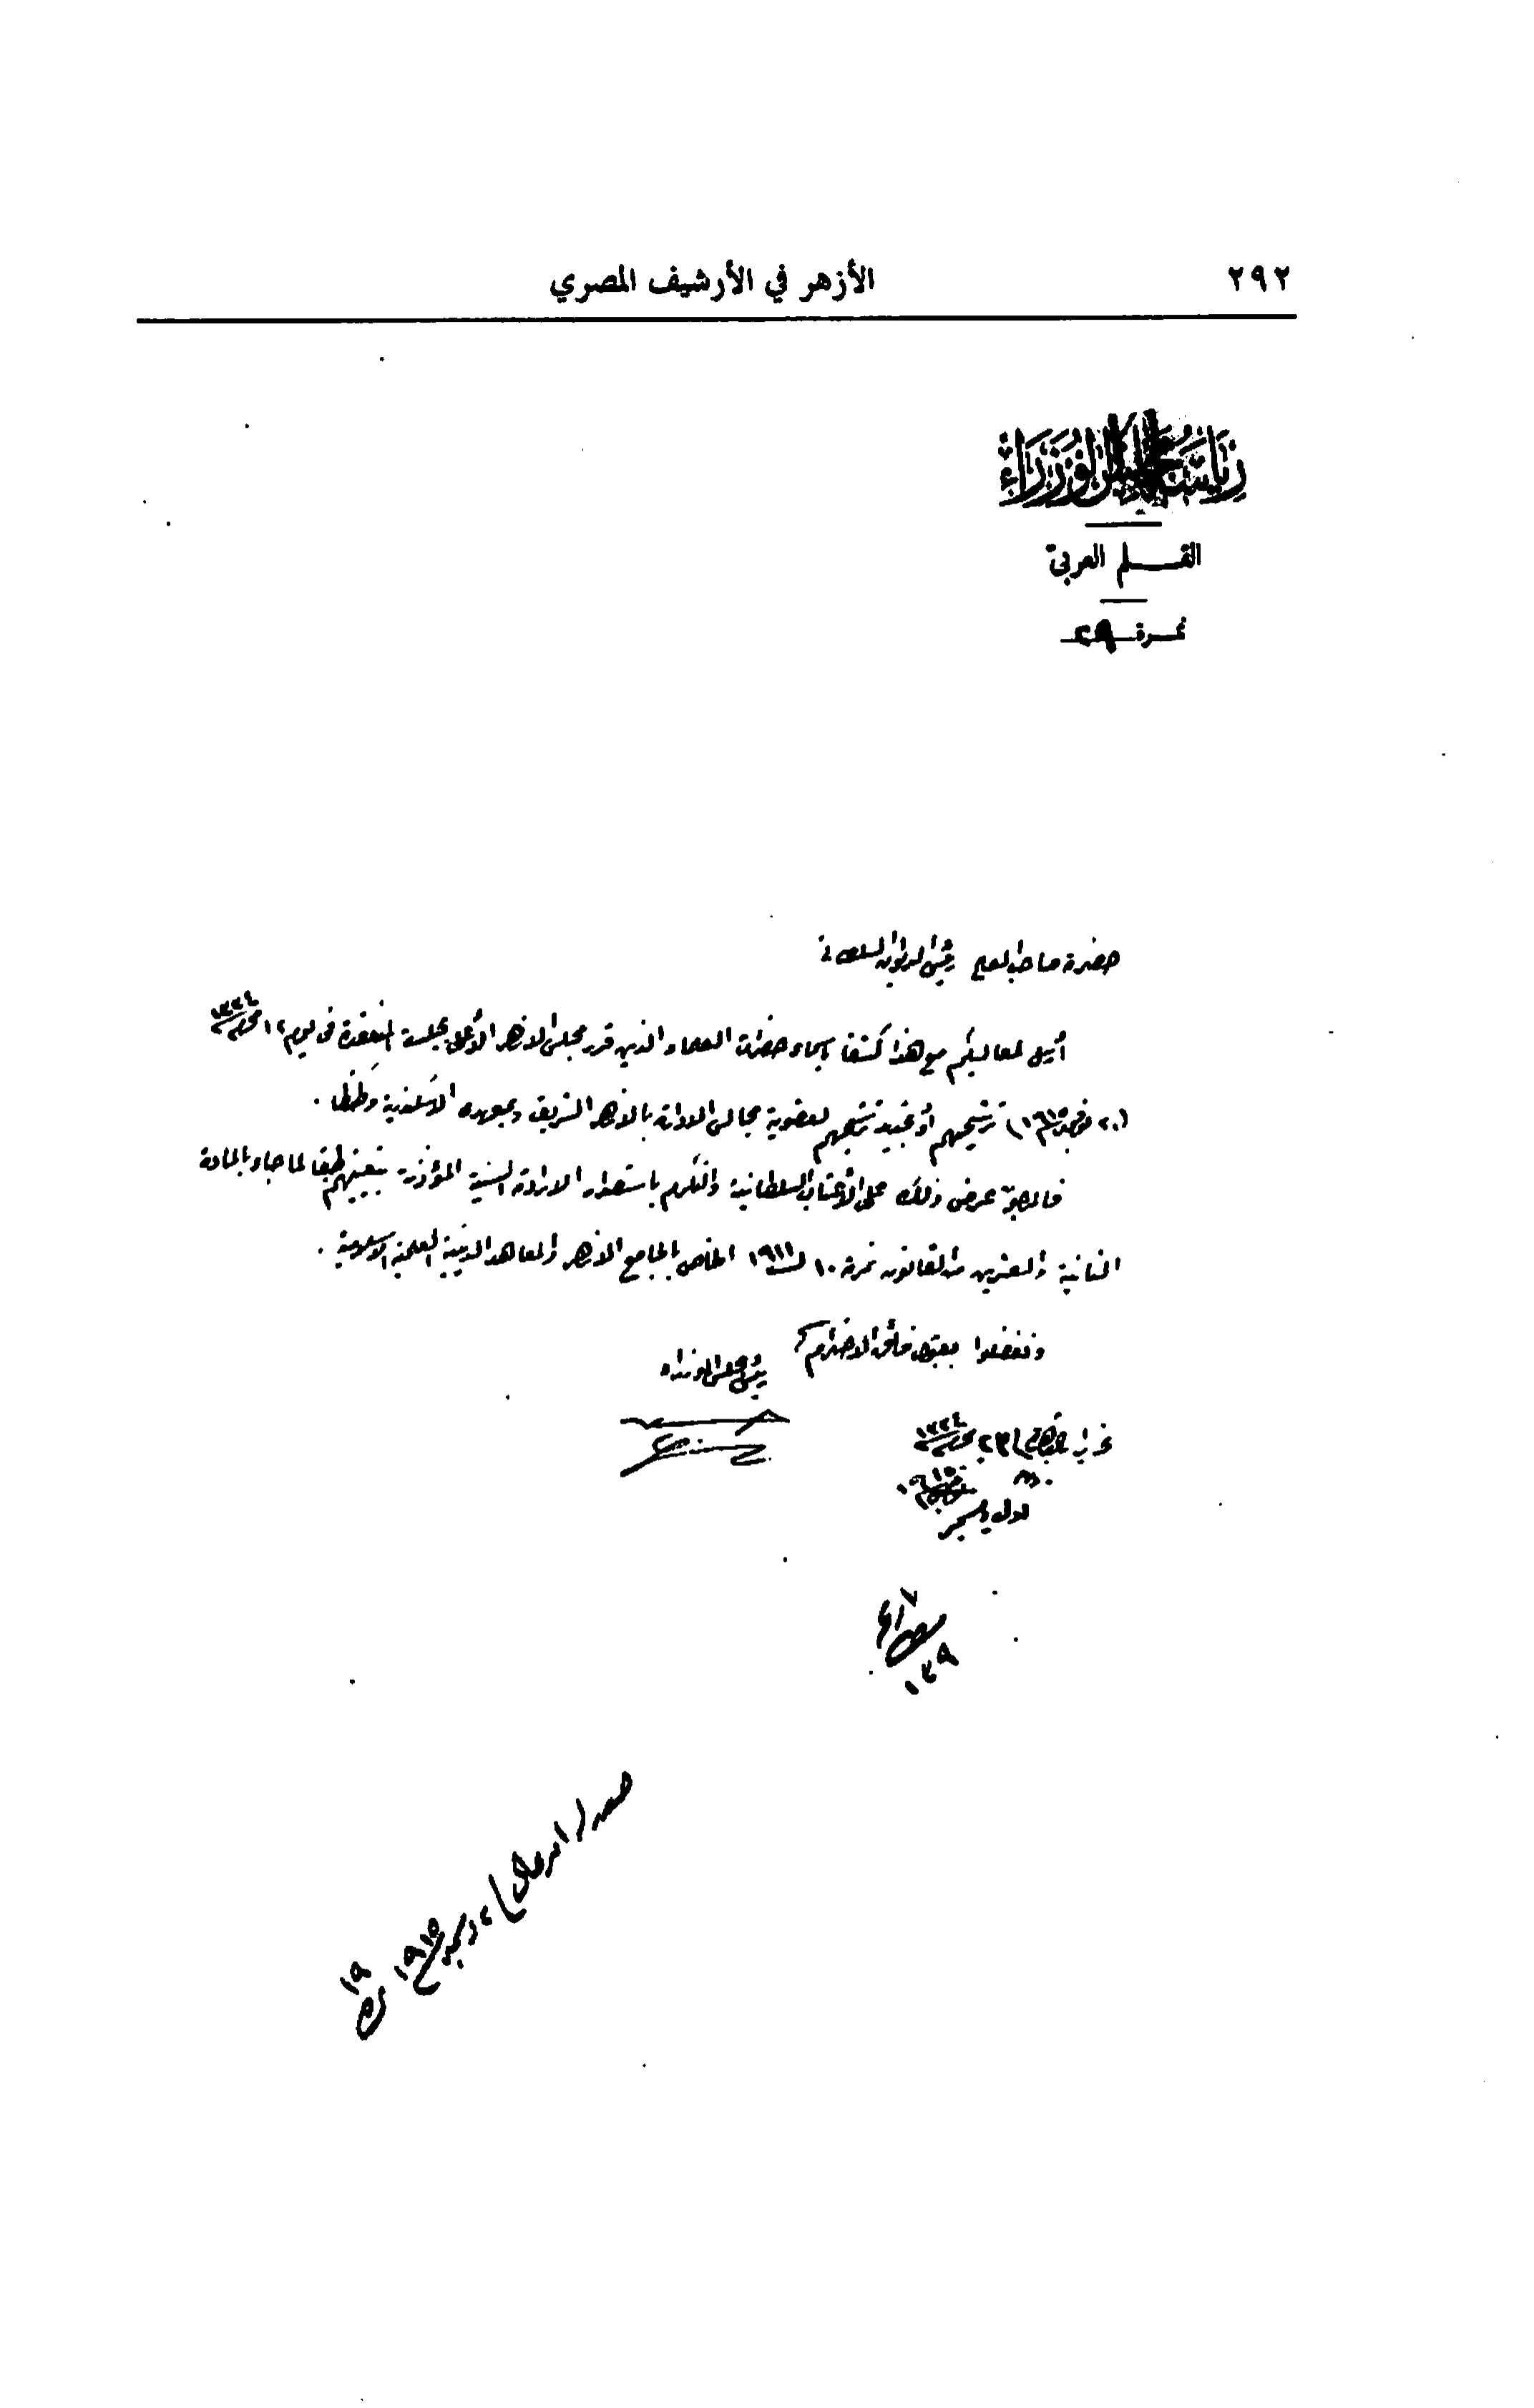 ٢٩٢
الأزهر في الأرشيف المصري
رياسة مجلس الوزراء
القلم العربى
نمرة ٢٩
حضرة صاحب المعالى رئيس الديوان السلطانى
أرسل لمعاليكم مع هذا كشفا باسماء حضرات العلماء الذين قرر مجلس الازهر الأعلى بجلسته المنعقدة فى يوم ١٢ محرم ١٣٣٤
(٢٠ نوفمبر ١٩١٥) ترشيحهم أو تجديد ترشيحهم لعضوية مجالس الادارة بالازهر الشريف وبمعهدى الاسكندرية وطنطا .
فالمرجو عرض ذلك على الأعتاب السلطانية والتكرم باستصدار الارادة السنية المؤذنة بتعيينهم طبقا لما جاء بالمادة
الثانية والعشرين من القانون نمرة ١٠ لسنة ١٩١١ الخاص بالجامع الازهر والمعاهد الدينية العلمية الاسلامية .
وتفضلوا بقبول فائق الاحترام
رئيس مجلس الوزراء
٢٣ محرم ١٣٣٤
١٩١٥
١٣٩
٢ ديسمبر ١٩١٥
١٩